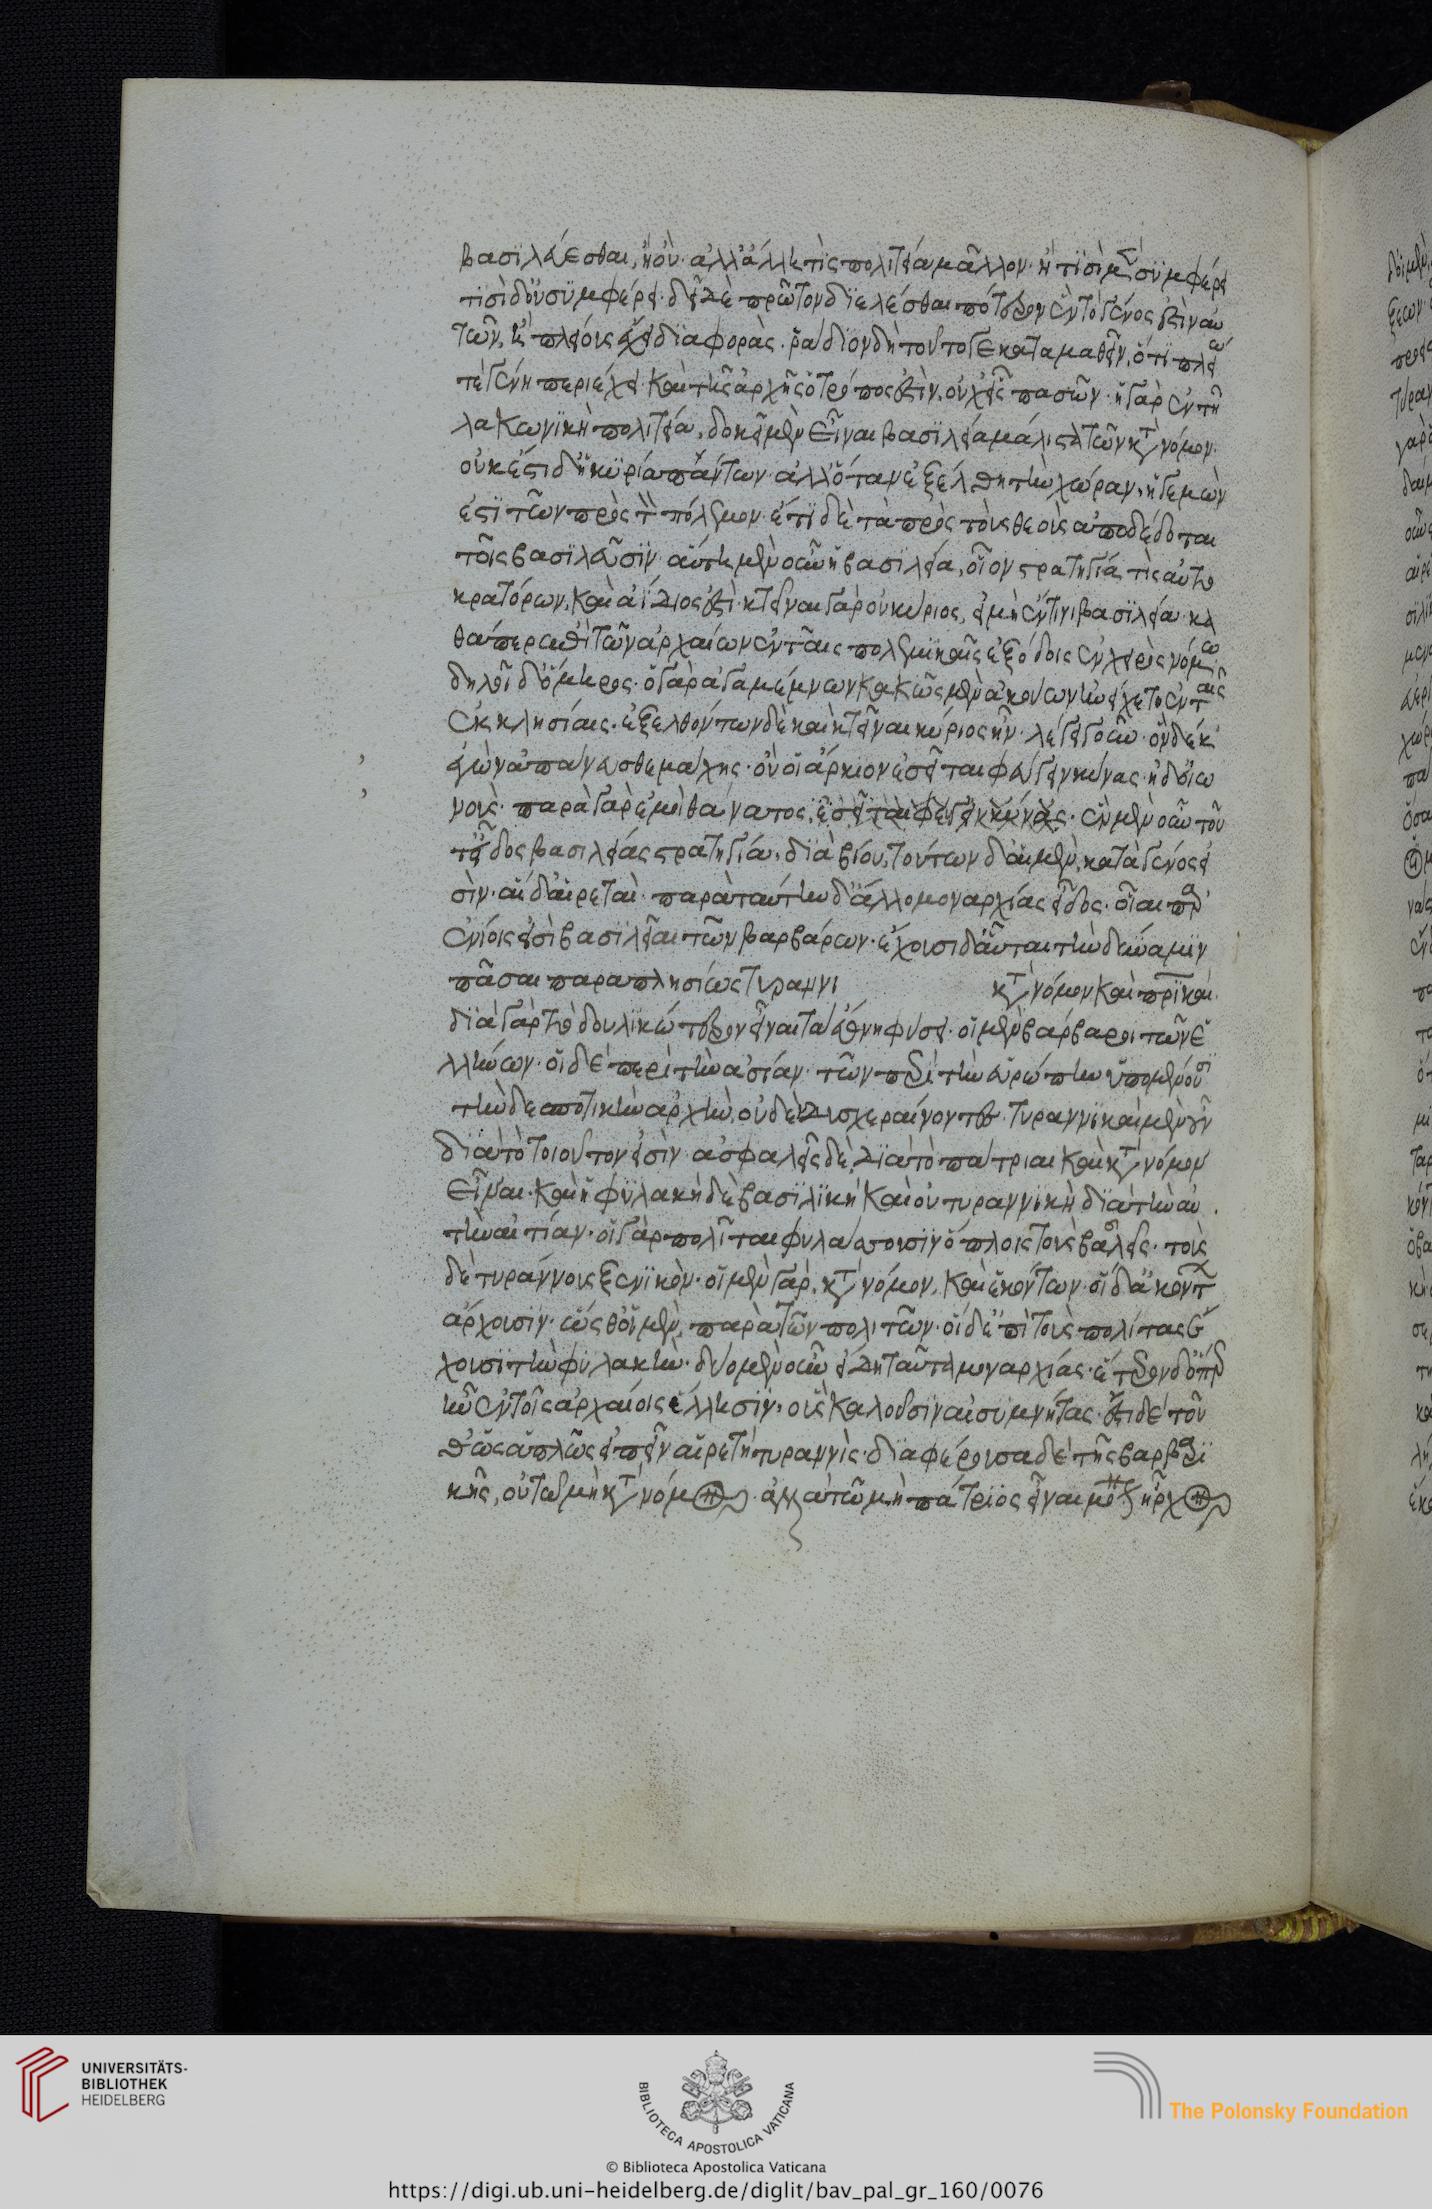 βασϊλεύεσθαι, ἢ οὐ· ἀλλ' ἄλλη τὶς πολιτεία μᾶλλον· ἢ τϊσὶ μὲν συμφέρει
τϊσὶ δ' οὐ συμφέρει· δεῖ δὲ πρῶτον διελέσθαι πότερον ἓν τὸ γένος ἐστὶν αὐ
τῶν, ἢ πλείους ἔχει διαφοράς. ῥάδιον δὴ τοῦτο γε καταμαθεῖν, ὅτι πλείω
τὲ γένη περιέχει καὶ τῆς ἀρχῆς ὁ τρόπος ἐστὶν, οὐχ εἷς πασῶν· ἡ γὰρ ἐν τῆ
λακωνϊκῆ πολιτεία, δοκεῖ μὲν εἶναι βασϊλεία μάλιστα τῶν κατὰ νόμον·
οὐκ ἔστι δὲ κυρία πάντων· ἀλλ' ὅταν ἐξέλθη τὴν χώραν, ἡγεμών
ἐστϊ τῶν πρὸς τὸν πόλεμον· ἔτϊ δὲ τὰ πρὸς τοὺς θεοὺς ἀποδέδοται
τοῖς βασϊλεῦσϊν· αὕτη μὲν οὖν ἡ βασϊλεία, οἷον στρατηγία τὶς αὐτο
κρατόρων, καὶ ἀΐδιος ἐστὶ· κτεῖναι γὰρ οὐ κύριος, εἰ μὴ ἔν τινι βασϊλεία· κα
θάπερ ἐπὶ τῶν ἀρχαίων ἐν ταῖς πολεμϊκαῖς ἐξόδοις ἐν χειρὸς νόμω·
δηλοῖ δ' ὅμηρος· ὁ γὰρ ἀγαμέμνων κακῶς μὲν ἀκούων ἠνείχετο ἐν ταῖς
ἐκκλησίαις· ἐξελθόντων δὲ καὶ κτεῖναι κύριος ἦν· λέγει γοῦν· ὃν δέ κ'
ἐγὼν ἀπάνευθε μάχης· οὔ οἱ ἄρκιον ἐσεῖται φυγέειν κύνας· ἠδ' οἰω
νούς· παρὰ γὰρ ἐμοὶ θάνατος, ἐσεῖται φυγέειν κύνας· ἓν μὲν οὖν τοῦ
τ' εἶδος βασιλείας στρατηγία, διὰ βίου, τούτων δ' αἱ μὲν, κατὰ γένος εἰ
σὶν· αἱ δ' αἱρεταὶ· παρὰ ταύτην δ' ἄλλο μοναρχίας εἶδος· οἷαι παρ'
ἐνίοις εἰσὶ βασϊλεῖαι τῶν βαρβάρων· ἔχουσι δ' αὗται τὴν δύναμϊν
πᾶσαι παραπλησίως τυραννι κατὰ νόμον καὶ πρϊκαί·
διὰ γὰρ τὸ δουλϊκώτερον εἶναι τὰ ἔθνη φύσει· οἱ μὲν βάρβαροι τῶν ἑ
λλήνων· οἱ δὲ περὶ τὴν ἀσίαν· τῶν περὶ τὴν εὐρώπην ὑπομένουσϊ
τὴν δεσποτικὴν ἀρχὴν, οὐδὲν δυσχεραίνοντες· τυραννϊκαὶ μὲν οὖν
διὰ τὸ τοιοῦτον εἰσὶν· ἀσφαλεῖς δὲ, διὰ τὸ πάτριαι καὶ κατὰ νόμον
εἶναι· καὶ ἡ φυλακὴ δὲ βασϊλϊκὴ καὶ οὐ τυραννϊκὴ διὰ τὴν αὐ
τὴν αἰτίαν· οἱ γὰρ πολῖται φυλάττουσϊν ὅπλοις τοὺς βασϊλεῖς· τοὺς
δὲ τυράννους ξενϊκὸν· οἱ μὲν γὰρ, κατὰ νόμον, καὶ ἑκόντων· οἱ δ' ἀκόντων
ἄρχουσϊν· ὥσθ' οἱ μὲν, παρὰ τῶν πολιτῶν· οἱ δ' ἐπὶ τοὺς πολίτας ἔ
χουσϊ τὴν φυλακὴν· δύο μὲν οὖν εἴδη ταῦτα μοναρχίας· ἕτερον δ' ὅπερ
ἦν ἐν τοῖς ἀρχαίοις ἕλλησϊν, οὓς καλοῦσϊν αἰσυμνήτας· ἔστι δὲ τοῦ
θ' ὡς ἁπλῶς εἰπεῖν αἱρετὴ τυραννὶς· διαφέρουσα δὲ τῆς βαρβαρϊ
κῆς, οὐ τῶ μὴ κατὰ νόμον· ἀλλὰ τῶ μὴ πάτριος εἶναι μόνον· ἦρχον
UNIVERSITÄTS-
BIBLIOTHEK
HEIDELBERG
BIBLIOTECA APOSTOLICA VATICANA
The Polonsky Foundation
© Biblioteca Apostolica Vaticana
https://digi.ub.uni-heidelberg.de/diglit/bav_pal_gr_160/0076